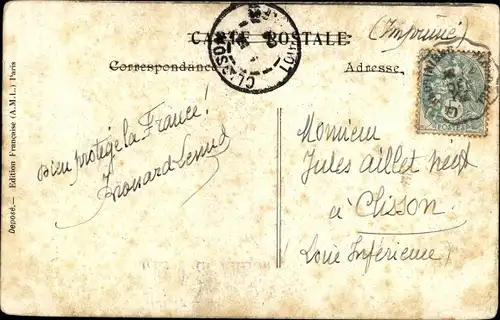 CARTE POSTALE
(Imprimé)
Correspondance
Adresse
CLISSON
Bien protège la France!
Monsieur
Jules aillet neveu
à Clisson
Loire Inférieure
Deposé. — Edition Française (A.M.L.) Paris
5
POSTES